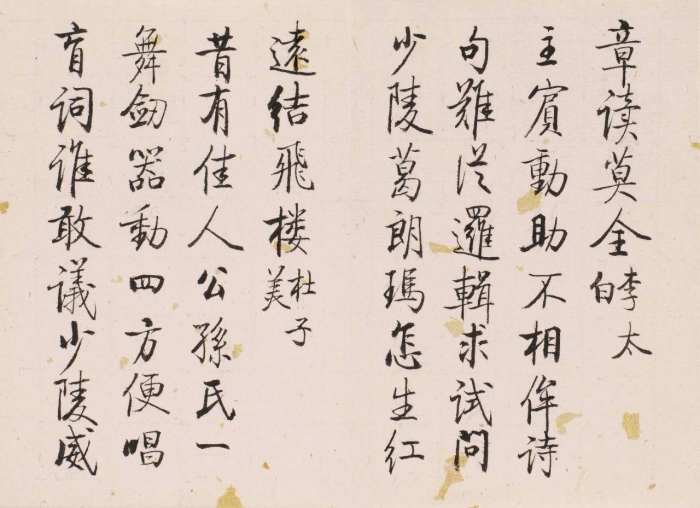 章读莫全李太白
主賓動助不相侔诗
句難從邏輯求试問
少陵葛朗瑪怎生红
遠結飛楼杜子美
昔有佳人公孫氏一
舞劍器動四方便唱
盲词谁敢議少陵威